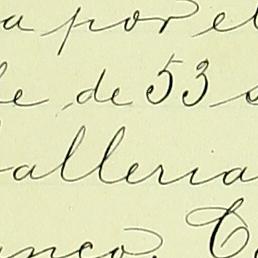 a por el
de 53 s
alleria
anco. C